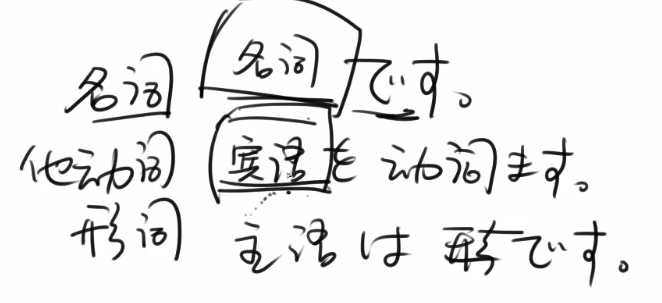 名词 名词です。
他动词 宾语を动词ます。
形词 主语は形です。